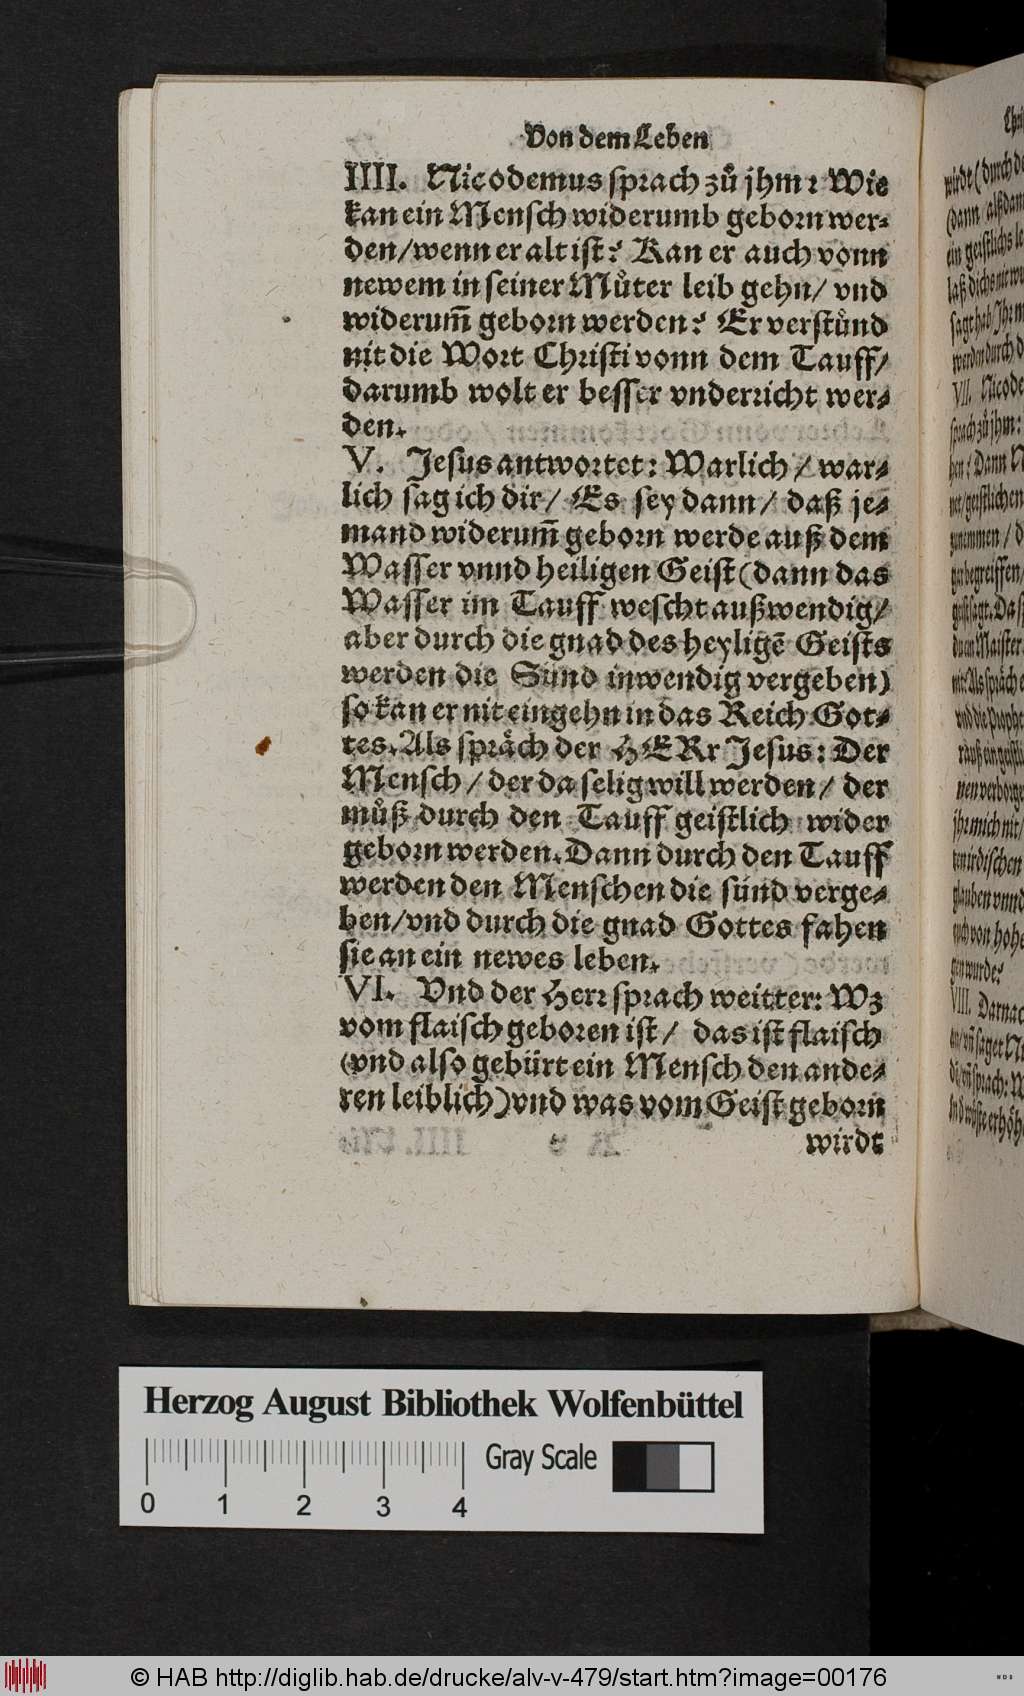 Von dem Leben
IIII. Nicodemus sprach zů jhm: Wie
kan ein Mensch widerumb geborn wer-
den/wenn er alt ist? Kan er auch vonn
newem in seiner Můter leib gehn/ vnd
widerum̃ geborn werden? Er verstůnd
nit die Wort Christi vonn dem Tauff/
darumb wolt er besser vnderricht wer-
den.
V. Jesus antwortet: Warlich/war-
lich sag ich dir/ Es sey dann/ daß je-
mand widerum̃ geborn werde auß dem
Wasser vnnd heiligen Geist (dann das
Wasser im Tauff wescht außwendig/
aber durch die gnad des heyligẽ Geists
werden die Sünd inwendig vergeben)
so kan er nit eingehn in das Reich Got-
tes. Als spräch der HERr Jesus: Der
Mensch/der da selig will werden/ der
můß durch den Tauff geistlich wider
geborn werden. Dann durch den Tauff
werden den Menschen die sünd verge-
ben/vnd durch die gnad Gottes fahen
sie an ein newes leben.
VI. Vnd der Herr sprach weitter: Wz
vom flaisch geboren ist/ das ist flaisch
(vnd also gebürt ein Mensch den ande-
ren leiblich) vnd was vom Geist geborn
wirdt
wirdt (durch
(dann alßdan
ein geistlichs
laß dichs nit
VII. Nicode
sprach zů jhm:
hen? Dann
geistlichen
begreiffen/
Maister
vnd die Prophe
nen verborge
jhr mich nit/
irdischen
glauben vnnd
auch von hohe
gen wurde?
VIII. Darnac
Herzog August Bibliothek Wolfenbüttel
Gray Scale
0 1 2 3 4
© HAB http://diglib.hab.de/drucke/alv-v-479/start.htm?image=00176